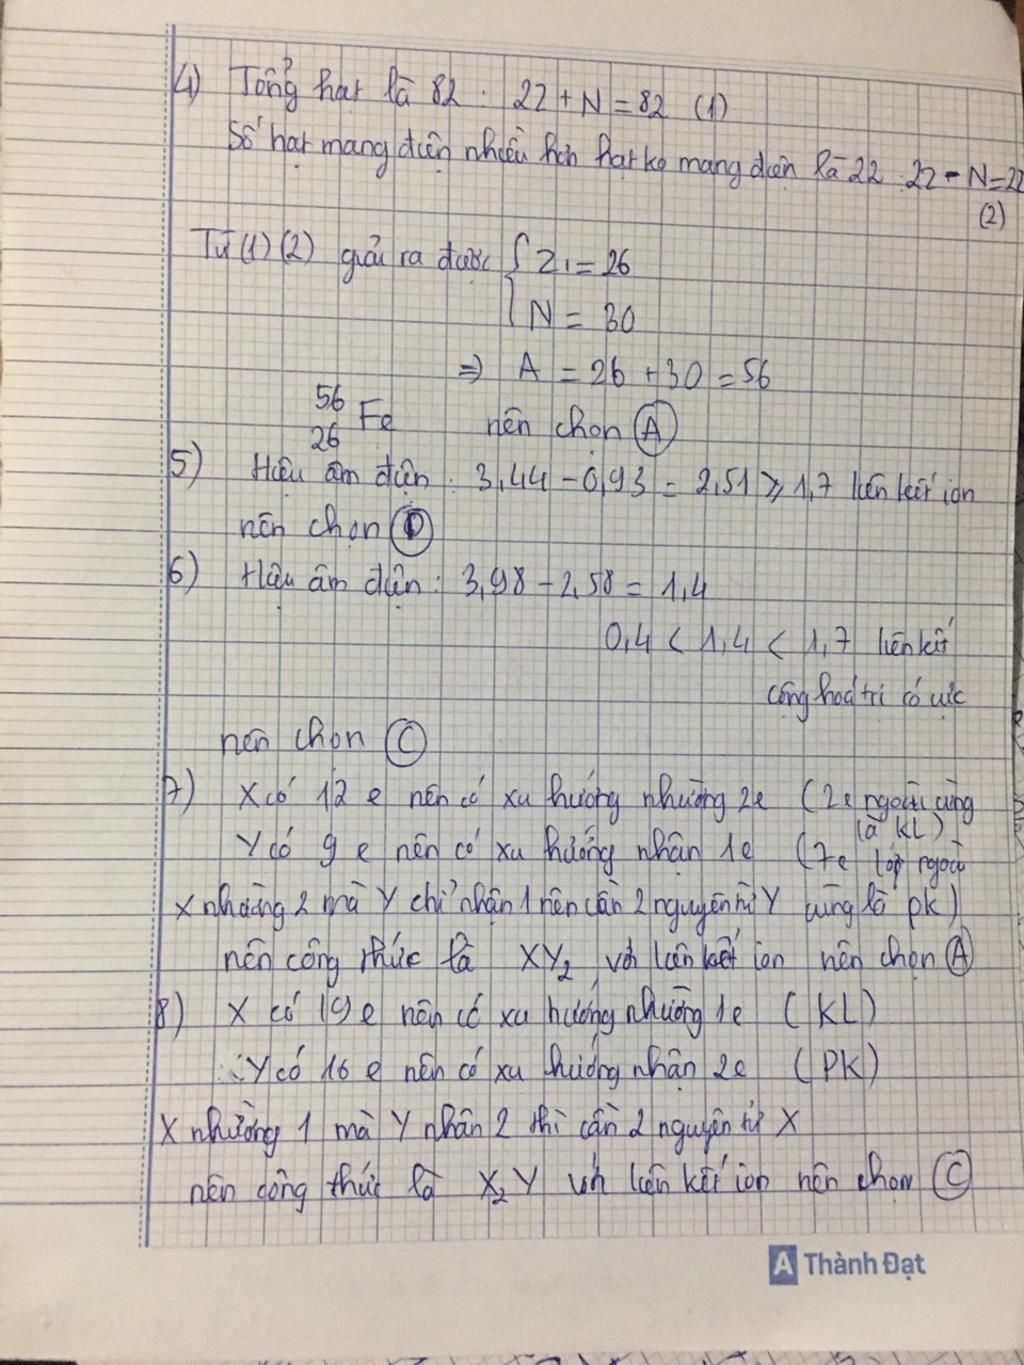 4) Tổng hạt là 82 : 2Z + N = 82 (1)
Số hạt mang điện nhiều hơn hạt ko mang điện là 22 : 2Z - N = 22
(2)
Từ (1) (2) giải ra được { Z1 = 26
N = 30
⇒ A = 26 + 30 = 56
56
26 Fe nên chọn (A)
5) Hiệu âm điện : 3,44 - 0,93 = 2,51 ≥ 1,7 liên kết ion
nên chọn (D)
6) Hiệu âm điện : 3,98 - 2,58 = 1,4
0,4 < 1,4 < 1,7 liên kết
cộng hoá trị có cực
nên chọn (C)
7) X có 12 e nên có xu hướng nhường 2e (2e ngoài cùng
là KL)
Y có 9 e nên có xu hướng nhận 1e (7e lớp ngoài
X nhường 2 mà Y chỉ nhận 1 nên cần 2 nguyên tử Y cùng là pk)
nên công thức là XY2 với liên kết ion nên chọn (A)
8) X có 19 e nên có xu hướng nhường 1e (KL)
Y có 16 e nên có xu hướng nhận 2e (PK)
X nhường 1 mà Y nhận 2 thì cần 2 nguyên tử X
nên công thức là X2Y với liên kết ion nên chọn (C)
A Thành Đạt